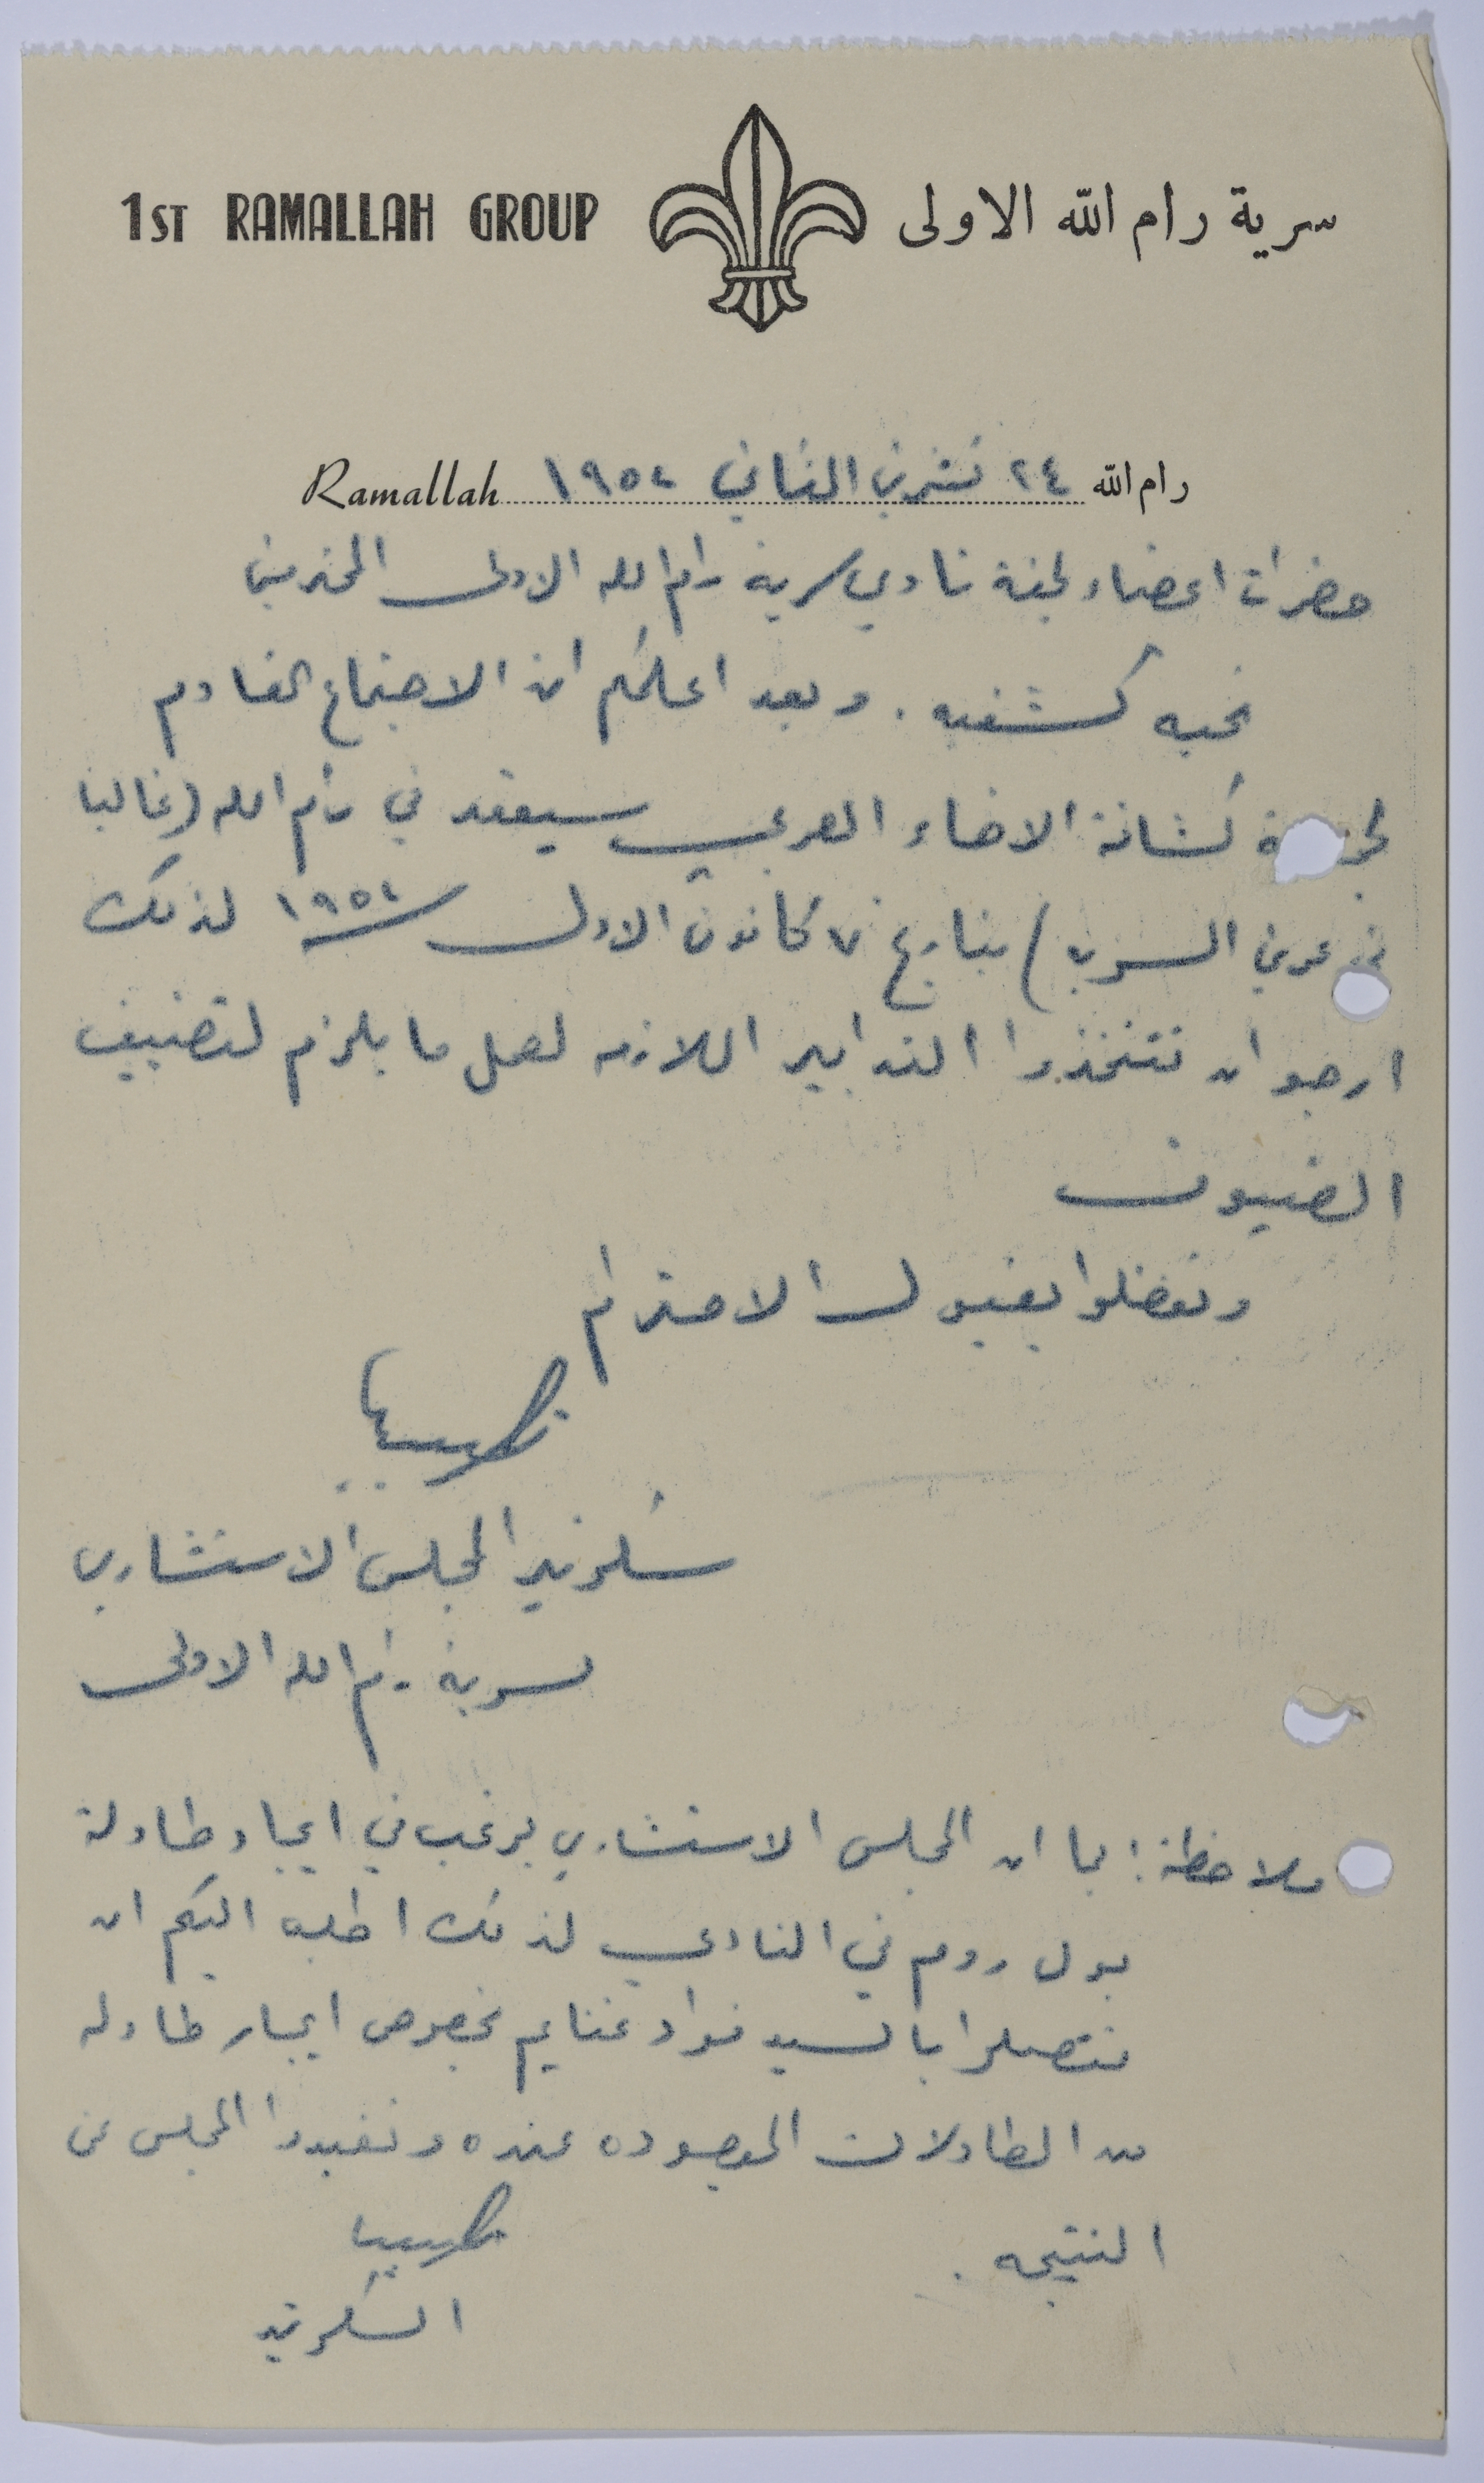 1ST RAMALLAH GROUP سرية رام الله الاولى
رام الله ٢٤ تشرين الثاني ١٩٥٤ Ramallah
حضرات اعضاء لجنة نادي سرية رام الله الاولى المحترمين
تحيه كشفيه . وبعد اعلمكم ان الاجتماع القادم
كشافة الاخاء العربي سيعقد في رام الله (غالبا
عرين السريه) بتاريخ ٧ كانون الاول ١٩٥٤ لذلك
ارجو ان تتخذوا التدابير اللازمه لعمل ما يلزم لتضييف
الضيوف
وتفضلوا بقبول الاحترام
سكرتير المجلس الاستشاري
لسرية رام الله الاولى
ملاحظة : بما ان المجلس الاستشاري يرغب في ايجاد طاولة
بول روم في النادي لذلك اطلب اليكم ان
تتصلوا بالسيد فواد غنايم بخصوص ايجار طاوله
من الطاولات الموجوده عنده وتفيدوا المجلس عن
النتيجه .
السكرتير